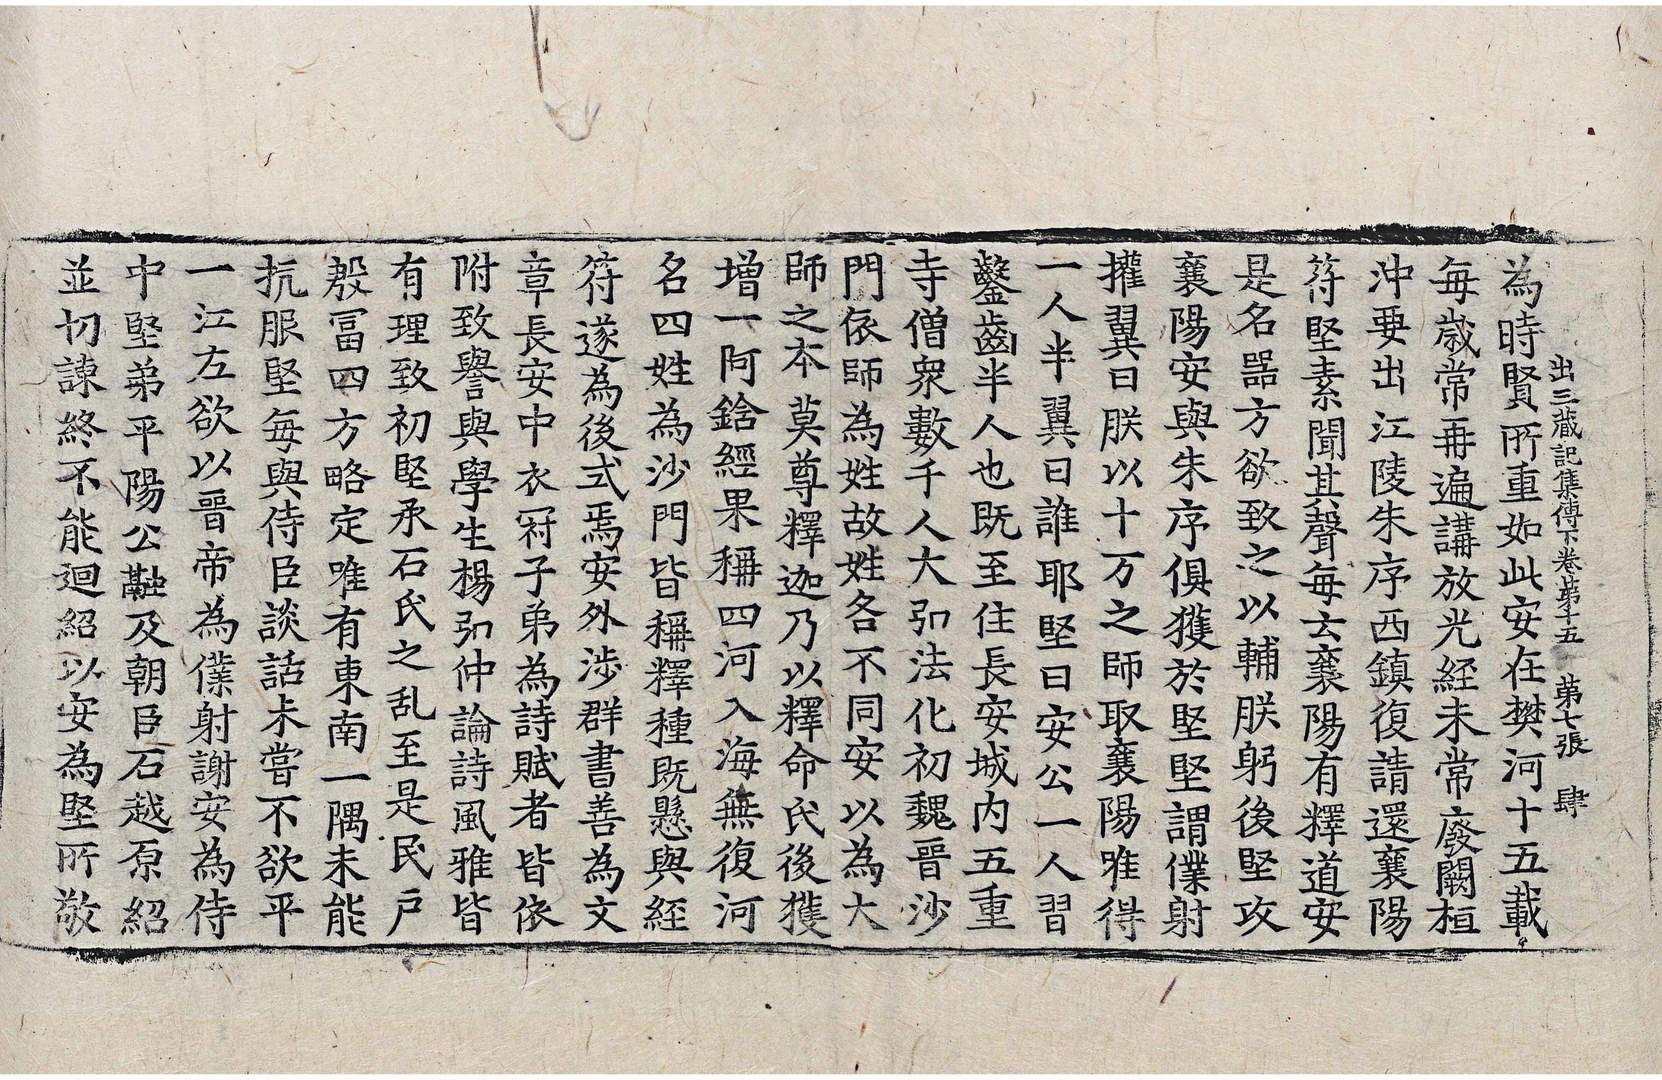 出三藏記集傳下卷第十五　第七張　肆
為時賢所重如此安在樊河十五載
每歲常再遍講放光經未常廢闕桓
沖要出江陵朱序西鎮復請還襄陽
苻堅素聞其聲每云襄陽有釋道安
是名器方欲致之以輔朕躬後堅攻
襄陽安與朱序俱獲於堅堅謂僕射
擢翼曰朕以十万之師取襄陽唯得
一人半翼曰誰耶堅曰安公一人習
鑿齒半人也既至住長安城内五重
寺僧衆數千人大弘法化初魏晉沙
門依師為姓故姓各不同安以為大
師之本莫尊釋迦乃以釋命氏後獲
增一阿鋡經果稱四河入海無復河
名四姓為沙門皆稱釋種既懸與經
符遂為後式焉安外涉群書善為文
章長安中衣冠子弟為詩賦者皆依
附致譽與學生楊弘仲論詩風雅皆
有理致初堅承石氏之乱至是民户
殷冨四方略定唯有東南一隅未能
抗服堅每與侍臣談話未嘗不欲平
一江左欲以晉帝為僕射謝安為侍
中堅弟平陽公融及朝臣石越原紹
並切諫終不能迴紹以安為堅所敬